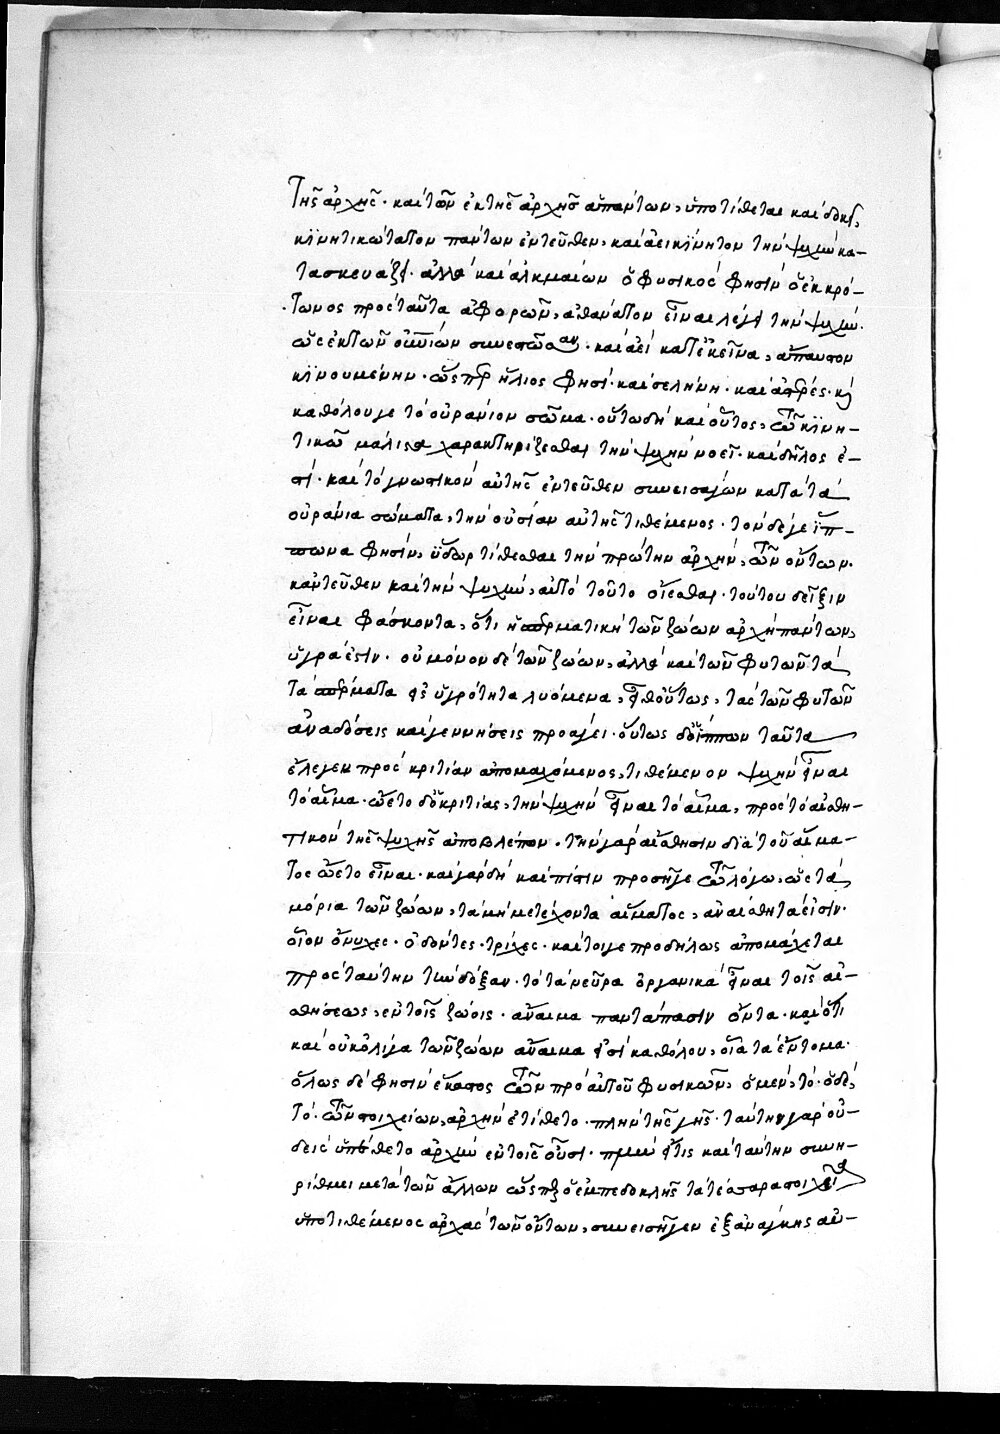 Τῆς ἀρχῆς· καὶ τῶν ἐκ τῆς ἀρχῆς ἁπάντων, ὑποτίθεται καὶ
κινητικώτατον πάντων ἐντεῦθεν, καὶ ἀεικίνητον τὴν ψυχὴν κα-
τασκευάζει· ἀλλὰ καὶ ἀλκμαίων ὁ φυσικὸς φησὶν ὁ ἐκ κρό-
τωνος πρὸς ταῦτα ἀφορῶν, ἀθάνατον εἶναι λέγει τὴν ψυχήν·
ὡς ἐκ τῶν συνεστῶσαν· καὶ ἀεὶ κατ' ἐκεῖνα, ἄπαυστον
κινουμένην· ὥσπερ ἥλιος φησὶ· καὶ σελήνη· καὶ ἀστέρες· καὶ
καθόλου γε τὸ οὐράνιον σῶμα· οὕτω δὴ καὶ οὗτος, τῶ κινη-
τικῶ μάλιστα χαρακτηρίζεσθαι τὴν ψυχὴν νοεῖ· καὶ δῆλος ἐ-
στὶ· καὶ τὸ γνωστικὸν αὐτῆς ἐντεῦθεν συνεισάγων κατὰ τὰ
οὐράνια σώματα, τὴν οὐσίαν αὐτῆς τιθέμενος· τὸν δέ γε ἵπ-
πωνα φησὶν, ὕδωρ τίθεσθαι τὴν πρώτην ἀρχὴν, τῶν ὄντων·
κἀντεῦθεν καὶ τὴν ψυχὴν, αὐτὸ τοῦτο οἴεσθαι· τούτου δεῖξιν
εἶναι φάσκοντα, ὅτι ἡ σπερματικὴ τῶν ζώων ἀρχὴ πάντων,
ὑγρά ἐστιν· οὐ μόνον δὲ τῶν ζώων, ἀλλὰ καὶ τῶν φυτῶν τὰ
τὰ σπέρματα εἰς ὑγρότητα λυόμενα, εἶθ' οὕτως, τὰς τῶν φυτῶν
ἀναδόσεις καὶ γεννήσεις προάγει· οὕτως δὲ ὁ ἵππων ταῦτα
ἔλεγεν πρὸς κριτίαν ἀπομαχόμενος, τιθέμενον ψυχὴν εἶναι
τὸ αἷμα· ᾤετο δὲ ὁ κριτίας, τὴν ψυχὴν εἶναι τὸ αἷμα, πρὸς τὸ αἰσθη-
τικὸν τῆς ψυχῆς ἀποβλέπων· τὴν γὰρ αἴσθησιν διὰ τοῦ αἵμα-
τος ᾤετο εἶναι· καὶ γὰρ δὴ καὶ πίστιν προσῆγε τῶ λόγω, ὡς τὰ
μόρια τῶν ζώων, τὰ μὴ μετέχοντα αἵματος, ἀναίσθητά εἰσιν·
οἷον ὄνυχες· ὀδόντες· τρίχες· καίτοιγε προδήλως ἀπομάχεται
πρὸς ταύτην τὴν δόξαν· τὸ τὰ νεῦρα ὀργανικὰ εἶναι τοῖς αἰ-
σθήσεως, ἐν τοῖς ζώοις· ἄναιμα παντάπασιν ὄντα· καὶ ὅτι
καὶ οὐκ ὀλίγα τῶν ζώων ἄναιμα εἰσὶ καθόλου, οἷα τὰ ἔντομα·
ὅλως δὲ φησὶν ἕκαστος τῶν πρὸ αὐτοῦ φυσικῶν, ὁ μὲν, τὸ· ὁ δὲ,
τὸ· τῶν στοιχείων, ἀρχὴν ἐτίθετο· πλὴν τῆς γῆς· ταύτην γὰρ οὐ-
δεὶς ὑπέθετο ἀρχὴν ἐν τοῖς οὖσι· πλὴν εἴ τις καὶ ταύτην συνη-
ρίθμει μετὰ τῶν ἄλλων ὥσπερ ὁ ἐμπεδοκλῆς τὰ τέσσαρα στοιχεῖα
ὑποτιθέμενος ἀρχὰς τῶν ὄντων, συνεισῆγεν ἐξανάγκης αὐ-